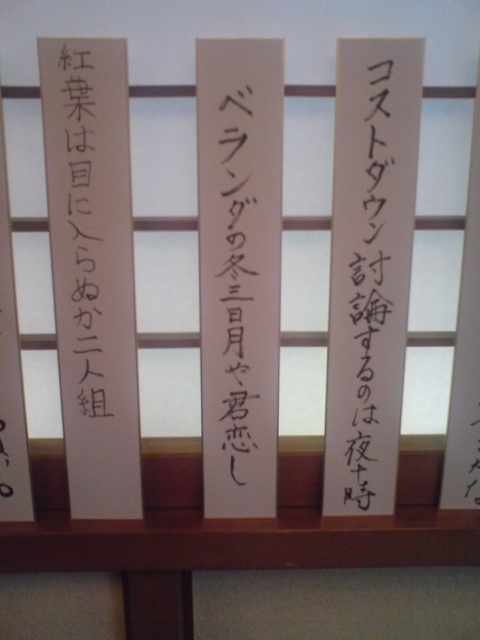 コストダウン討論するのは夜十時
ベランダの冬三日月や君恋し
紅葉は目に入らぬか二人組